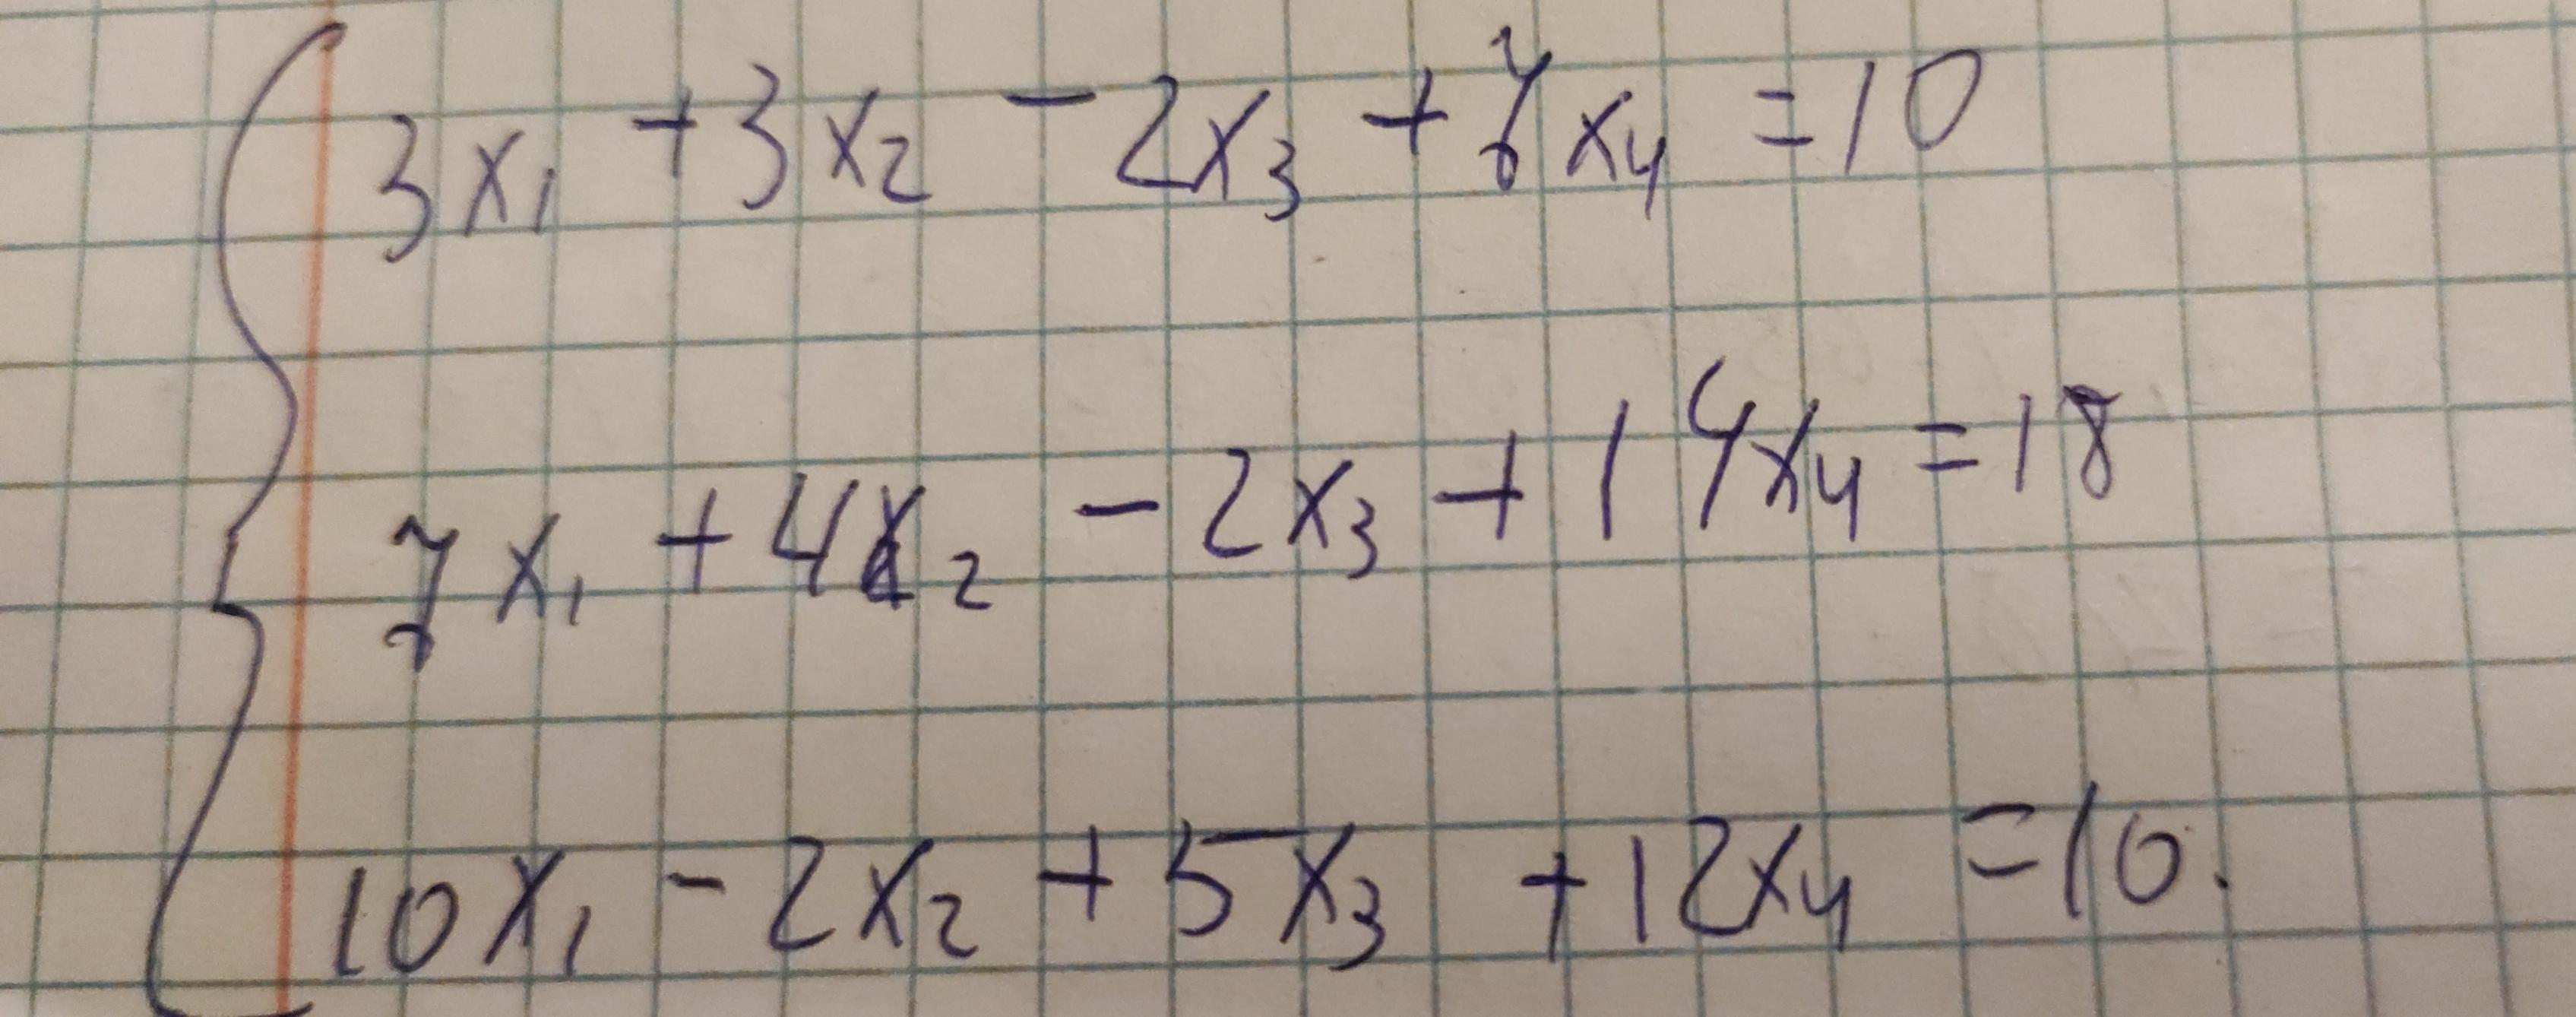 3x₁ + 3x₂ - 2x₃ + 7x₄ = 10
7x₁ + 4x₂ - 2x₃ + 14x₄ = 18
10x₁ - 2x₂ + 5x₃ + 12x₄ = 10.